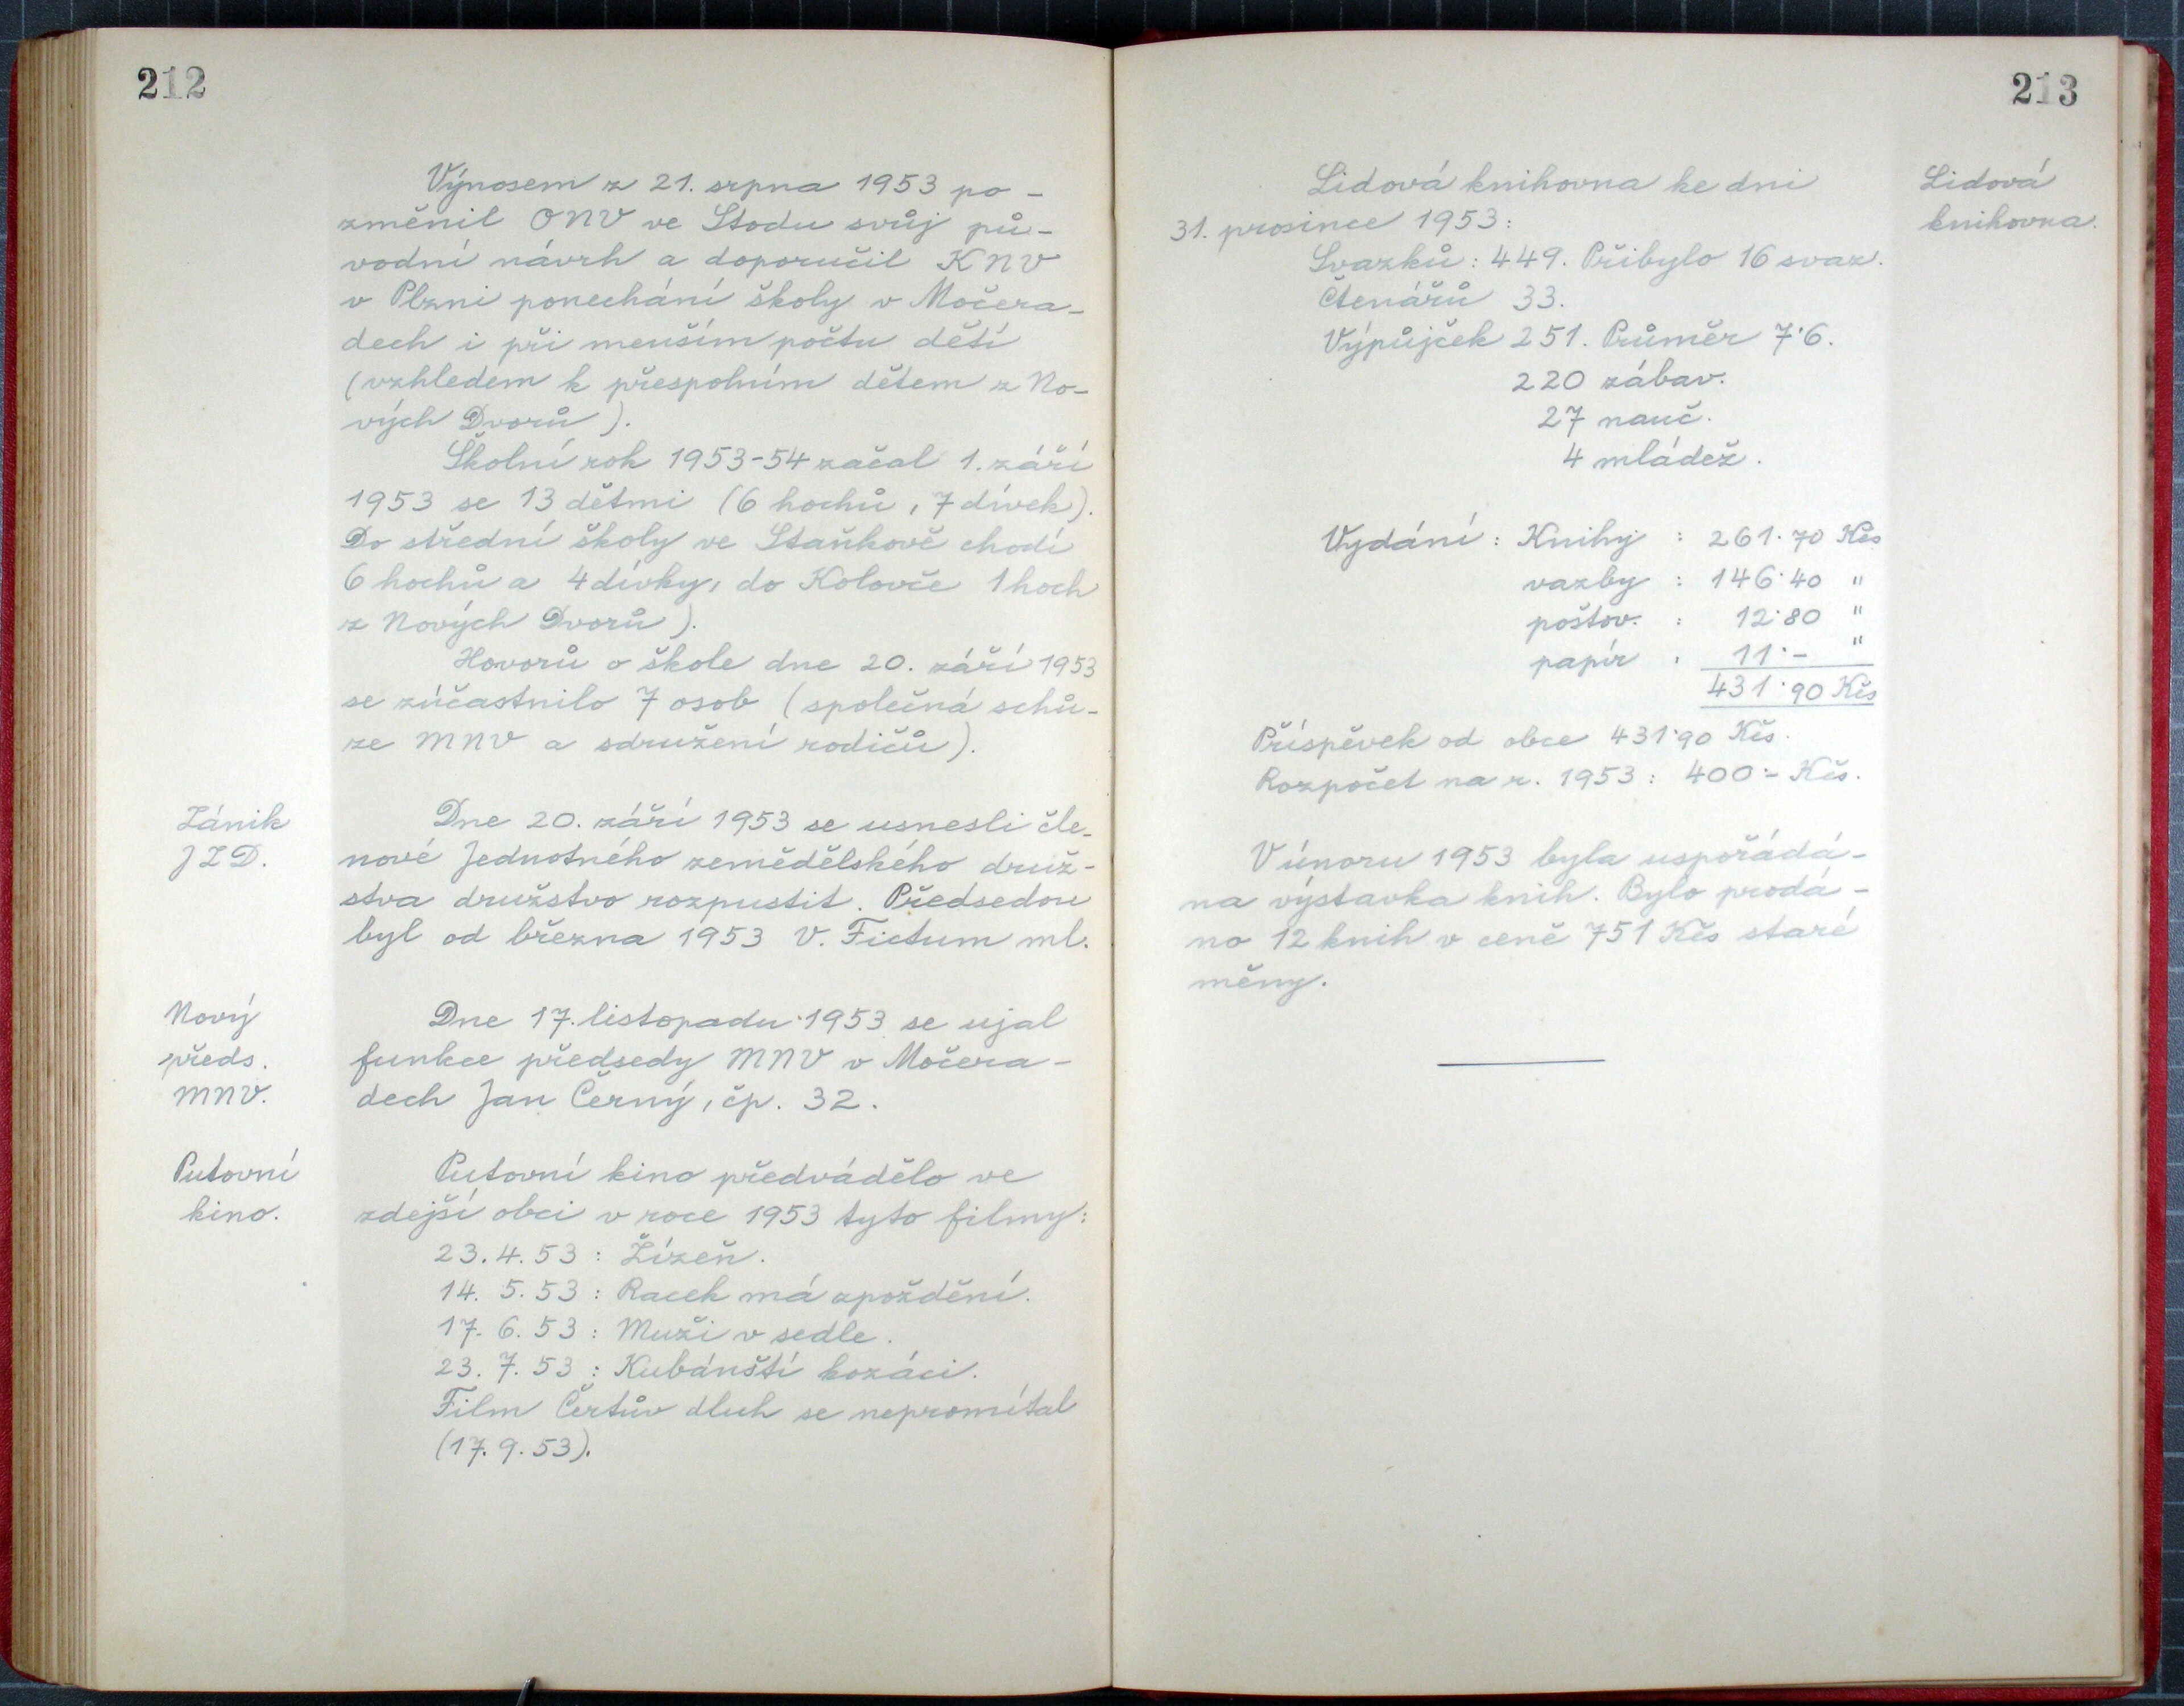 212
Výnosem z 21. srpna 1953 po-
změnil ONV ve Stodu svůj pů-
vodní návrh a doporučil KNV
v Plzni ponechání školy v Močera-
dech i při menším počtu dětí
(vzhledem k přespolním dětem z No-
vých Dvorů).
Školní rok 1953-54 začal 1. září
1953 se 13 dětmi (6 hochů, 7 dívek).
Do střední školy ve Staňkově chodí
6 hochů a 4 dívky, do Kolovče 1 hoch
z Nových Dvorů).
Hovorů o škole dne 20. září 1953
se zúčastnilo 7 osob (společná schů-
ze MNV a sdružení rodičů).
Zánik
JZD.
Dne 20. září 1953 se usnesli čle-
nové Jednotného zemědělského druž-
stva družstvo rozpustit. Předsedou
byl od března 1953 V. Fictum ml.
Nový
předs.
MNV.
Dne 17. listopadu 1953 se ujal
funkce předsedy MNV v Močera-
dech Jan Černý, čp. 32.
Putovní
kino.
Putovní kino předvádělo ve
zdejší obci v roce 1953 tyto filmy:
23.4.53 : Žízeň.
14. 5. 53 : Racek má zpoždění.
17. 6. 53 : Muži v sedle.
23. 7. 53 : Kubánští kozáci.
Film Čertův dluh se nepromítal
(17. 9. 53).
213
Lidová
knihovna.
Lidová knihovna ke dni
31. prosince 1953:
Svazků: 449. Přibylo 16 svaz.
Čtenářů 33.
Výpůjček 251. Průměr 7·6.
220 zábav.
27 nauč.
4 mládež.
Vydání : Knihy : 261·70 Kčs
vazby : 146·40 "
poštov. : 12·80 "
papír : 11·- "
431·90 Kčs
Příspěvek od obce 431·90 Kčs.
Rozpočet na r. 1953 : 400·- Kčs.
V únoru 1953 byla uspořádá-
na výstavka knih. Bylo prodá-
no 12 knih v ceně 751 Kčs staré
měny.